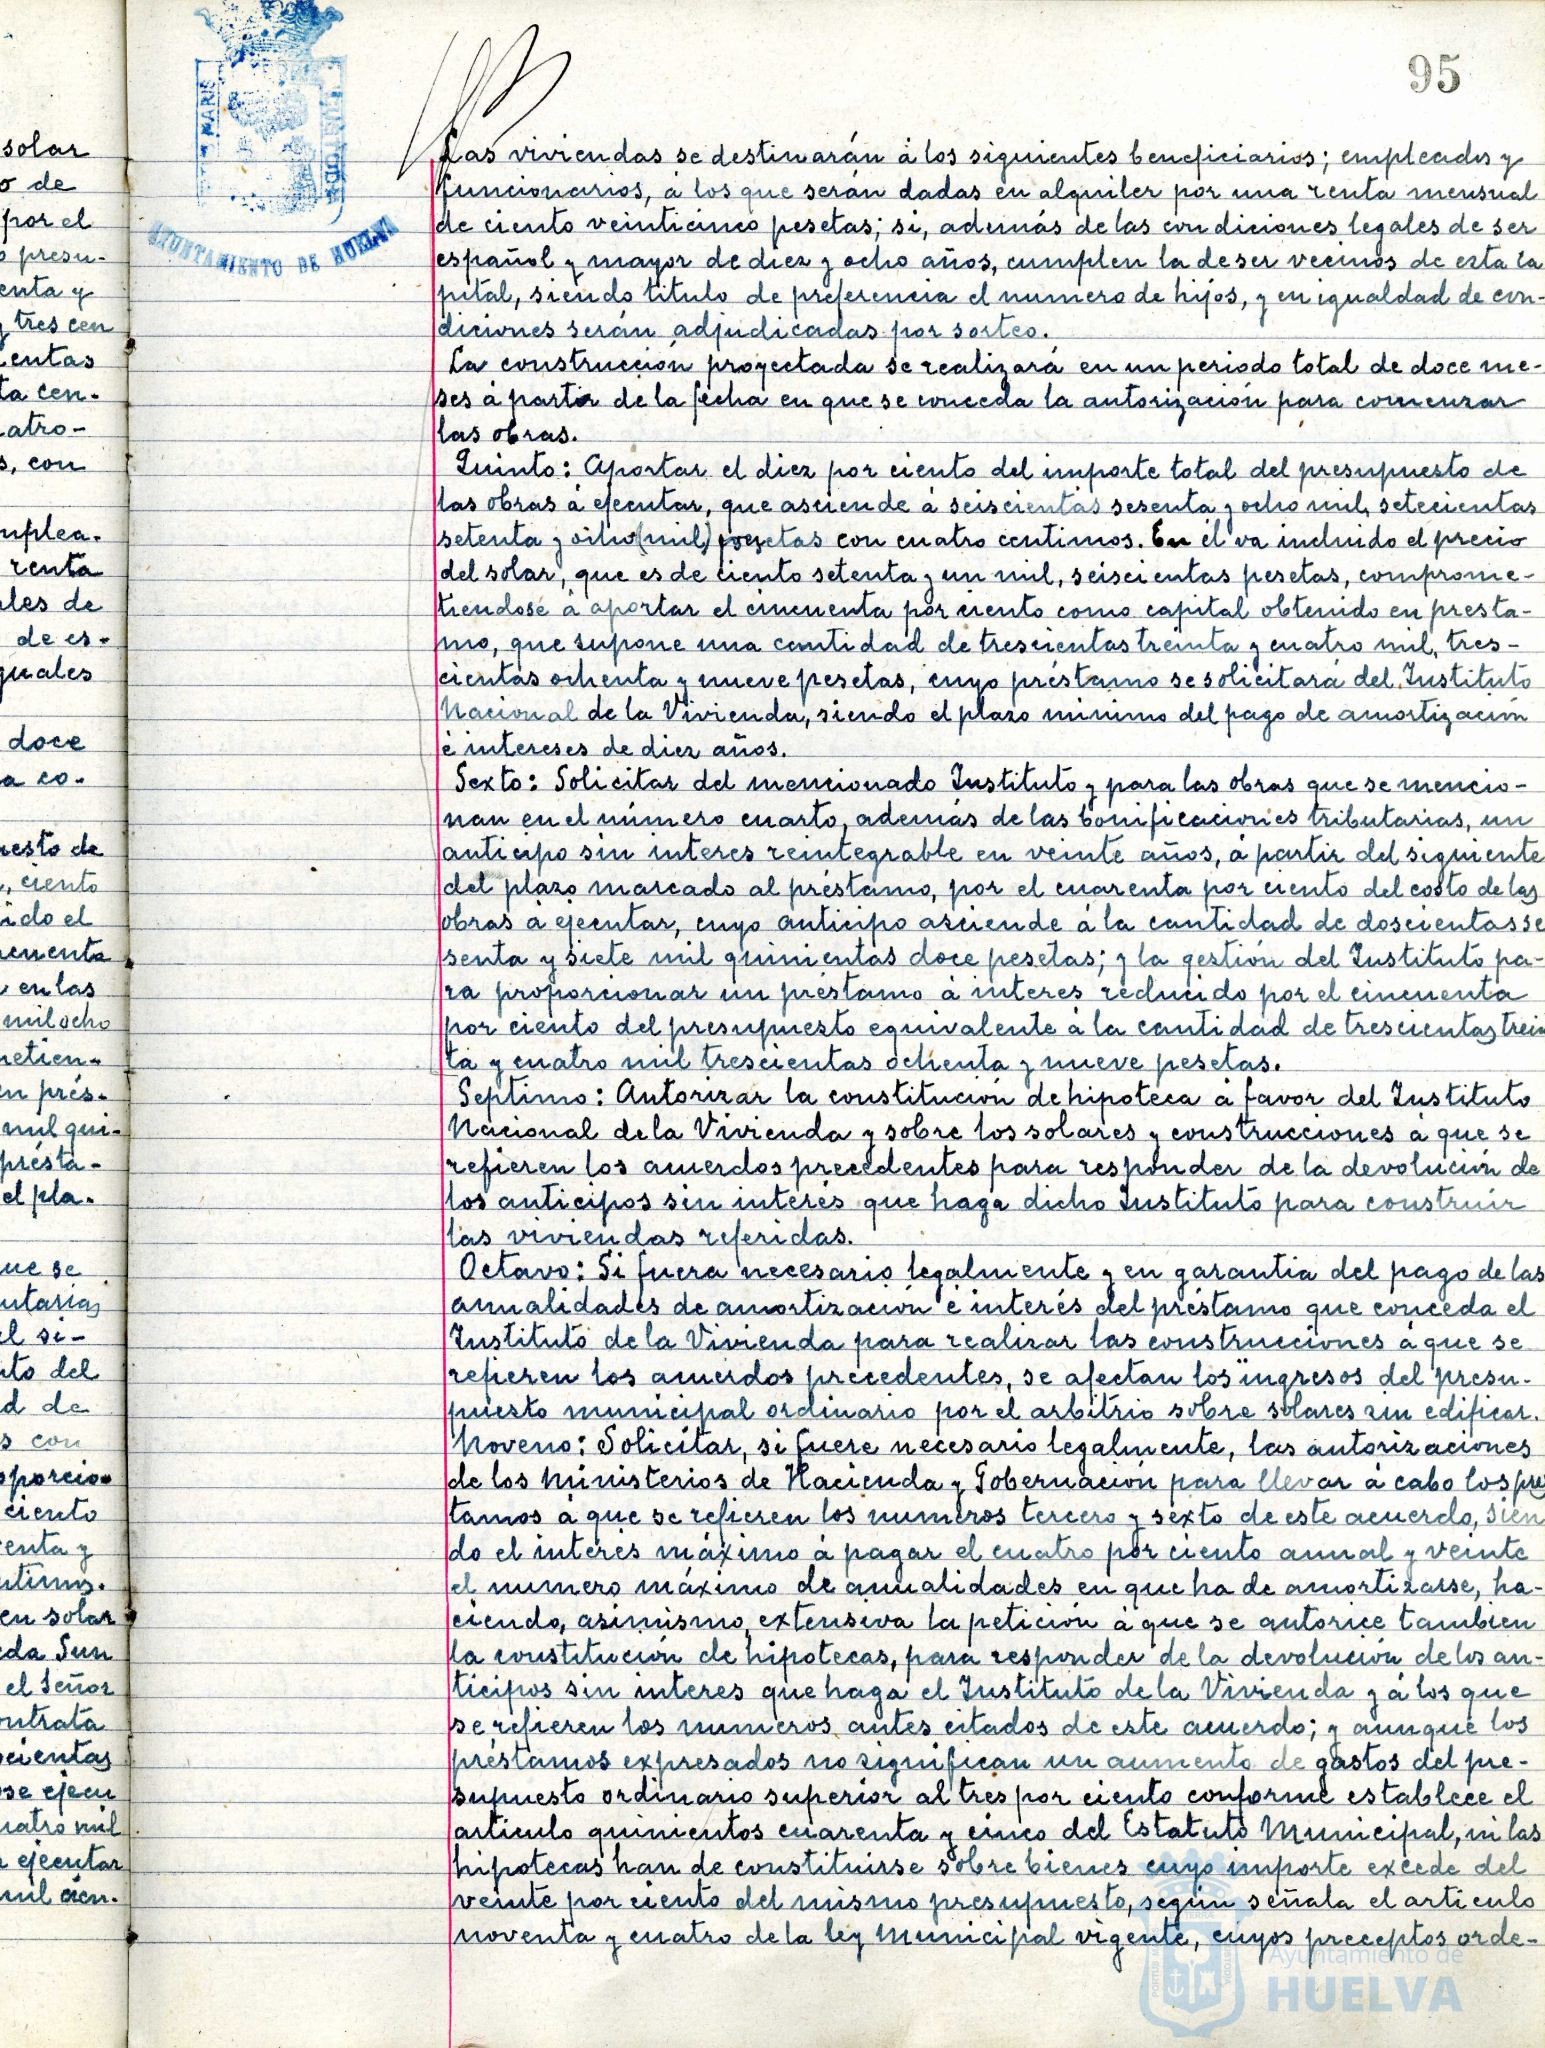 95
MARIS
CUSTODIA
AYUNTAMIENTO DE HUELVA
solar
o de
por el
o presu-
enta y
y tres cen
entas
ta cen-
atro-
s, con
mplea-
renta
ales de
de es-
guales
doce
a co-
uesto de
, ciento
ido el
ncuenta
en las
mil ocho
metien-
en prés-
mil qui-
présta-
el pla-
que se
utarias
el si-
nto del
d de
s con
oporcio-
ciento
enta y
ntimos.
en solar
eda Sun
el Señor
ontrata
ocientas
ose ejecu
uatro mil
a ejecutar
mil cien-
Las viviendas se destinarán á los siguientes beneficiarios; empleados y
funcionarios, á los que serán dadas en alquiler por una renta mensual
de ciento veinticinco pesetas; si, además de las condiciones legales de ser
español y mayor de diez y ocho años, cumplen la de ser vecinos de esta ca
pital, siendo titulo de preferencia el numero de hijos, y en igualdad de con-
diciones serán adjudicadas por sorteo.
La construcción proyectada se realizará en un periodo total de doce me-
ses á partir de la fecha en que se conceda la autorización para comenzar
las obras.
Quinto: Aportar el diez por ciento del importe total del presupuesto de
las obras á ejecutar, que asciende á seiscientas sesenta y ocho mil, setecientas
setenta y ocho (mil) pesetas con cuatro centimos. En él va incluido el precio
del solar, que es de ciento setenta y un mil, seiscientas pesetas, comprome-
tiendose á aportar el cincuenta por ciento como capital obtenido en presta-
mo, que supone una cantidad de trescientas treinta y cuatro mil, tres-
cientas ochenta y nueve pesetas, cuyo préstamo se solicitará del Instituto
Nacional de la Vivienda, siendo el plazo minimo del pago de amortización
é intereses de diez años.
Sexto: Solicitar del mencionado Instituto y para las obras que se mencio-
nan en el número cuarto, además de las bonificaciones tributarias, un
anticipo sin interes reintegrable en veinte años, á partir del siguiente
del plazo marcado al préstamo, por el cuarenta por ciento del costo de las
obras á ejecutar, cuyo anticipo asciende á la cantidad de doscientas se
senta y siete mil quinientas doce pesetas; y la gestión del Instituto pa-
ra proporcionar un préstamo á interes reducido por el cincuenta
por ciento del presupuesto equivalente á la cantidad de trescientas trein
ta y cuatro mil trescientas ochenta y nueve pesetas.
Septimo: Autorizar la constitución de hipoteca á favor del Instituto
Nacional de la Vivienda y sobre los solares y construcciones á que se
refieren los acuerdos precedentes para responder de la devolución de
los anticipos sin interés que haga dicho Instituto para construir
las viviendas referidas.
Octavo: Si fuera necesario legalmente y en garantia del pago de las
anualidades de amortización é interés del préstamo que conceda el
Instituto de la Vivienda para realizar las construcciones á que se
refieren los acuerdos precedentes, se afectan los ingresos del presu-
puesto municipal ordinario por el arbitrio sobre solares sin edificar.
Noveno: Solicitar, si fuere necesario legalmente, las autorizaciones
de los Ministerios de Hacienda y Gobernación para llevar á cabo los pres
tamos á que se refieren los numeros tercero y sexto de este acuerdo, sien
do el interés máximo á pagar el cuatro por ciento anual y veinte
el numero máximo de anualidades en que ha de amortizarse, ha-
ciendo, asimismo, extensiva la petición á que se autorice tambien
la constitución de hipotecas, para responder de la devolución de los an-
ticipos sin interes que haga el Instituto de la Vivienda y á los que
se refieren los numeros antes citados de este acuerdo; y aunque los
préstamos expresados no significan un aumento de gastos del pre-
supuesto ordinario superior al tres por ciento conforme establece el
articulo quinientos cuarenta y cinco del Estatuto Municipal, ni las
hipotecas han de constituirse sobre bienes cuyo importe excede del
veinte por ciento del mismo presupuesto, según señala el articulo
noventa y cuatro de la ley Municipal vigente, cuyos preceptos orde-
Ayuntamiento de
HUELVA